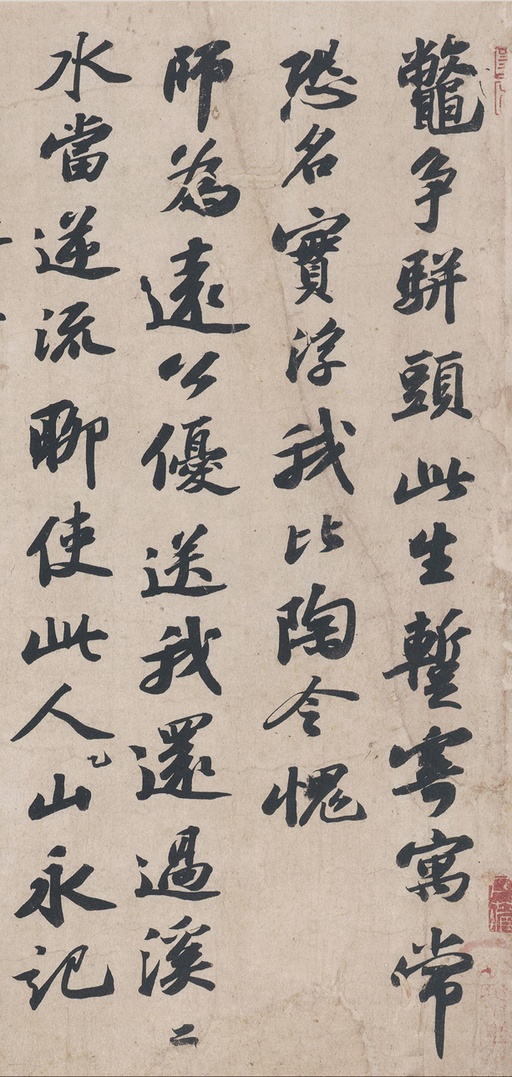 鼈争駢頭此生暫寄寓常
恐名實浮我比陶令愧
師為遠公優送我還過溪〻
水當逆流聊使此人山永記